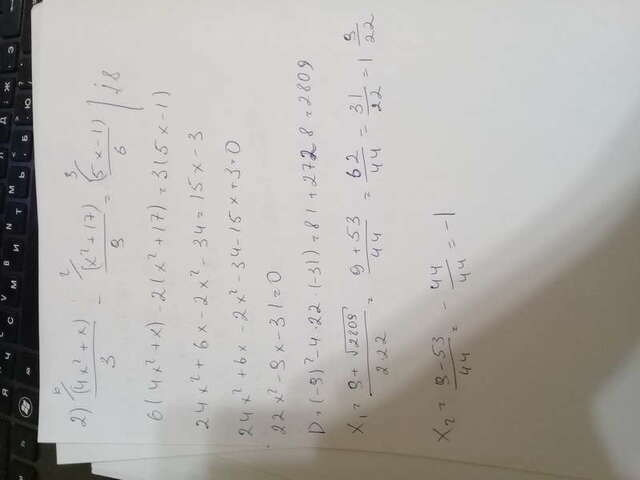 2) (4x² + x)/3 - (x² + 17)/9 = (5x - 1)/6 | · 18
6(4x² + x) - 2(x² + 17) = 3(5x - 1)
24x² + 6x - 2x² - 34 = 15x - 3
24x² + 6x - 2x² - 34 - 15x + 3 = 0
22x² - 9x - 31 = 0
D = (-9)² - 4 · 22 · (-31) = 81 + 2728 = 2809
x₁ = (9 + √2809)/(2·22) = (9 + 53)/44 = 62/44 = 31/22 = 1 9/22
x₂ = (9 - 53)/44 = - 44/44 = -1